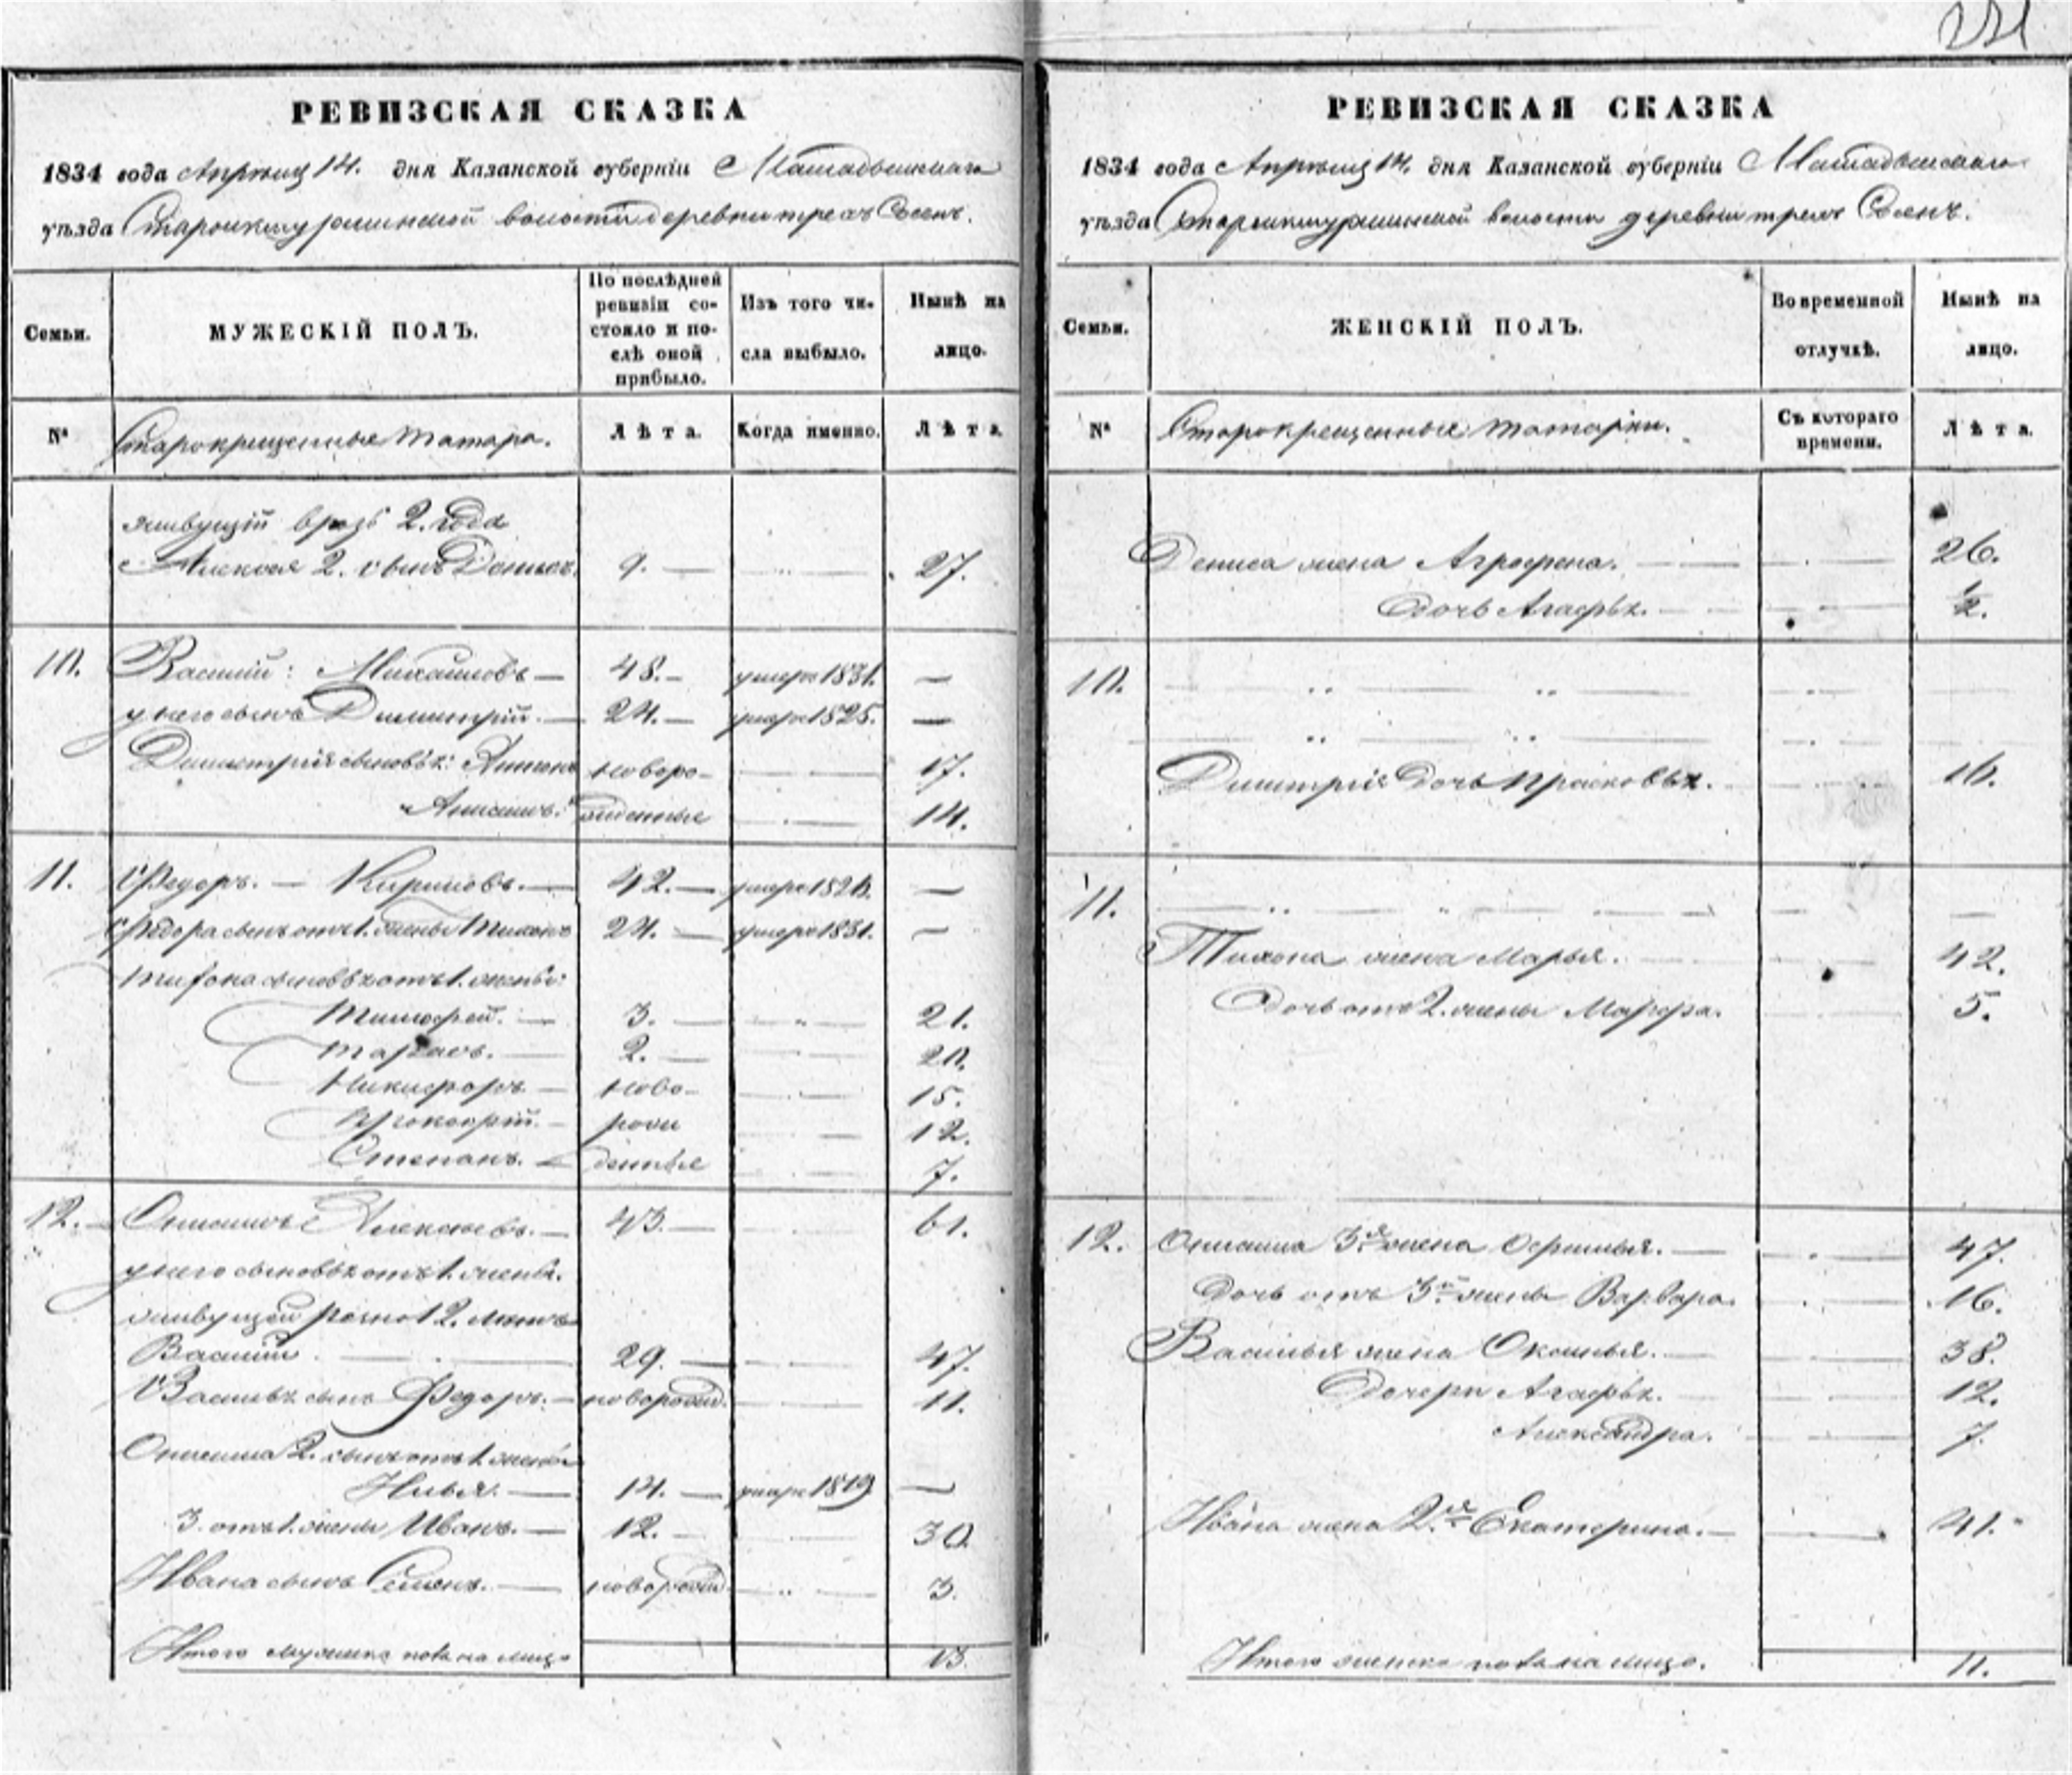 221
РЕВИЗСКАЯ СКАЗКА
1834 года Апреля 14. дня Казанской губерніи Мамадышскаго
уѣзда волости деревни трехъ Сосенъ.
Семьи.
МУЖЕСКІЙ ПОЛЪ.
По послѣдней
ревизіи со-
стояло и по-
слѣ оной
прибыло.
Изъ того чи-
сла выбыло.
Нынѣ на
лицо.
№
Старокрещенные татара.
Лѣта.
Когда именно.
Лѣта.
живущій врозь 2. года
Алексея 2. сынъ Денисъ. 9. — 27.
10. Василій: Михайловъ — 48. — умеръ 1831. —
у него сынъ Димитрій. — 24. — умеръ 1825. —
Димитрія сыновья: Антонъ новоро- 17.
жденные 14.
11. Федоръ. — Кириловъ. — 42. — умеръ —
Федора сынъ отъ 1. жены Тихонъ 24. — умеръ 1831. —
Тихона сыновья отъ 1. жены:
Тимофей. — 3. — 21.
Тарасъ. — 2. — 20.
Никифоръ — ново- 15.
— рож 12.
Степанъ. денные 7.
12. Онисимъ Алексеевъ. — 43. — 61.
у него сыновья отъ 1. жены.
живущей розно 12. летъ
Василій 29. — 47.
Василья сынъ Федоръ. — новорожд. 11.
Онисима 2. сынъ отъ 1. жены
Илья. — 14. — умеръ 1819 —
3. отъ 1. жены Иванъ. — 12. — 30.
Ивана сынъ Семенъ. — новорожд. 3.
Итого мужеска пола на лицо 13.
РЕВИЗСКАЯ СКАЗКА
1834 года Апреля 14. дня Казанской губерніи Мамадышскаго
уѣзда волости деревни трехъ Сосенъ.
Семьи.
ЖЕНСКІЙ ПОЛЪ.
Во временной
отлучкѣ.
Нынѣ на
лицо.
№
Старокрещенные татарки.
Съ котораго
времени.
Лѣта.
Дениса жена Агрофена. — 26.
Дочь Агафья. — 1/2.
10.
Димитрія Дочь Прасковья. 16.
11.
Тихона жена Марья. 42.
Дочь отъ 2. жены Марфа. 5.
12. Онисима 3я жена Офимья. — 47.
Дочь отъ 3й жены Варвара. 16.
Василья жена Оксинья. — 38.
Дочери Агафья. 12.
Александра. 7.
Ивана жена 2я Екатерина. — 41.
Итого женска пола на лицо. 11.